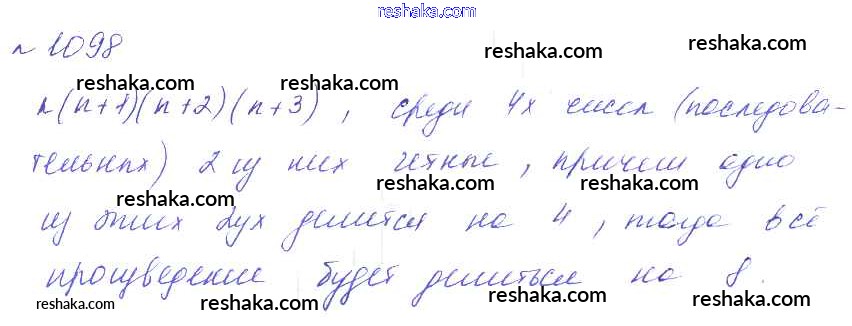 reshaka.com
№ 1098
reshaka.com reshaka.com
reshaka.com reshaka.com
n(n+1)(n+2)(n+3), среди 4х чисел (последова-
reshaka.com reshaka.com
тельных) 2 из них четные, причем одно
reshaka.com reshaka.com
из этих 2ух делится на 4, тогда всё
reshaka.com reshaka.com
произведение будет делиться на 8.
reshaka.com reshaka.com
reshaka.com reshaka.com